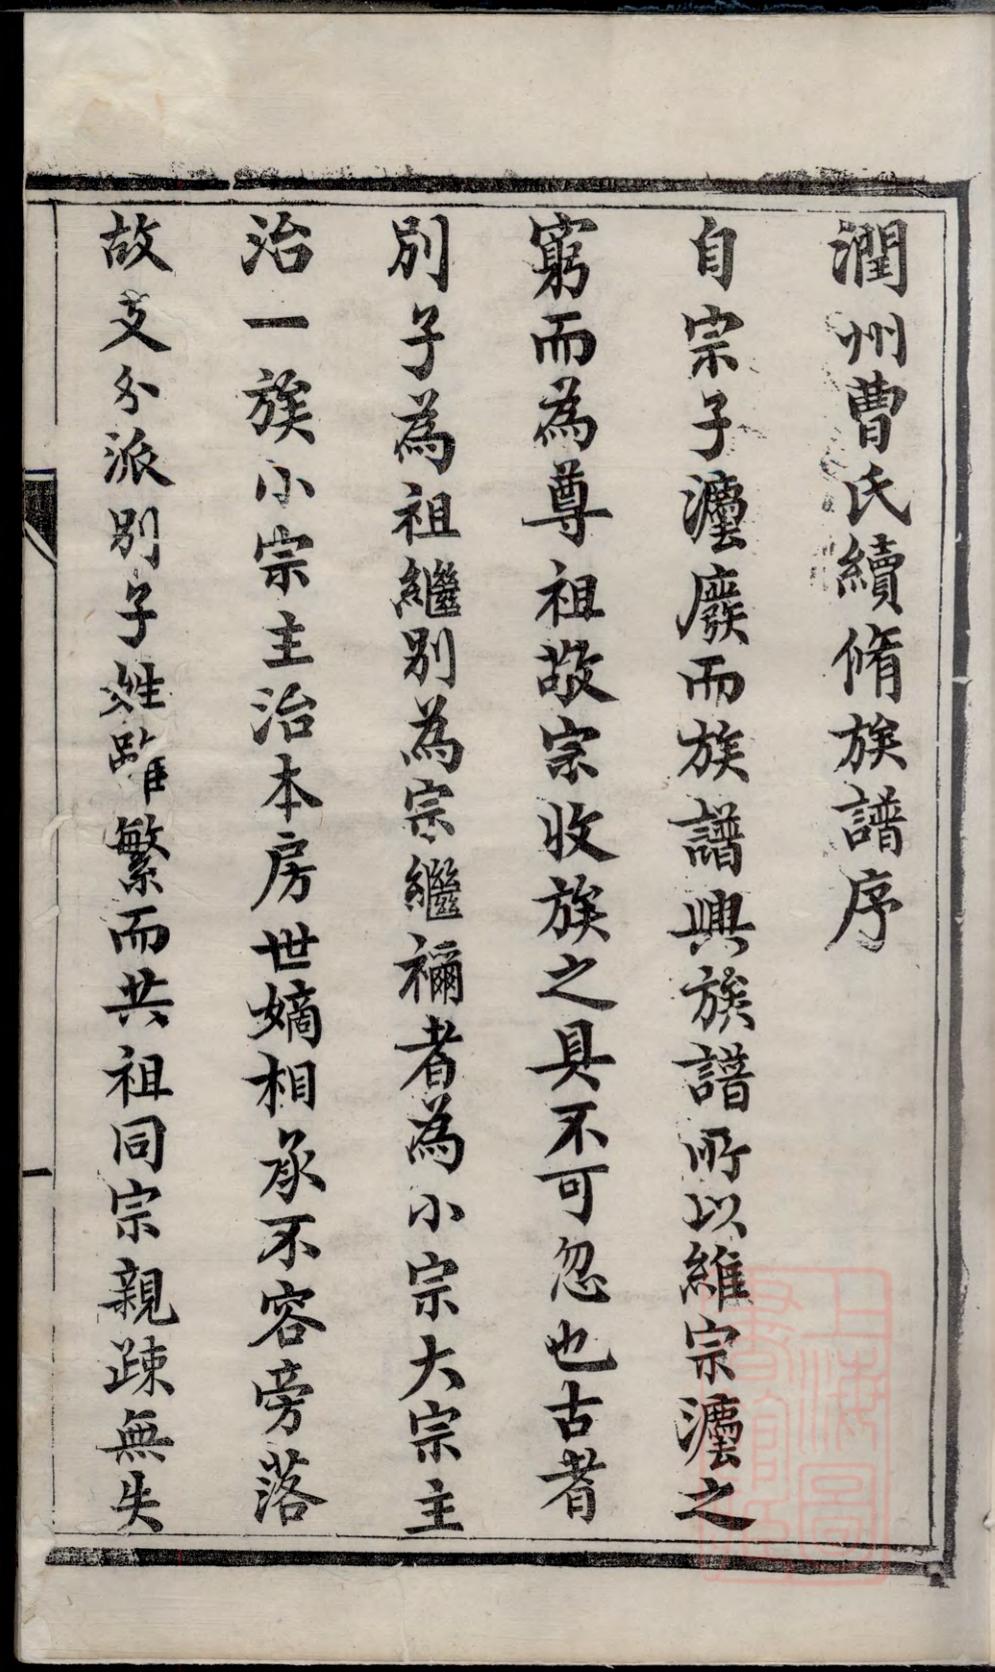 潤州曹氏續脩族譜序
自宗子灋廢而族譜興族譜所以維宗灋之
窮而為尊祖敬宗收族之具不可忽也古者
別子為祖繼別為宗繼禰者為小宗大宗主
治一族小宗主治本房世嫡相承不容旁落
故支分派別子姓雖繁而共祖同宗親疎無失
一
上海圖書館藏